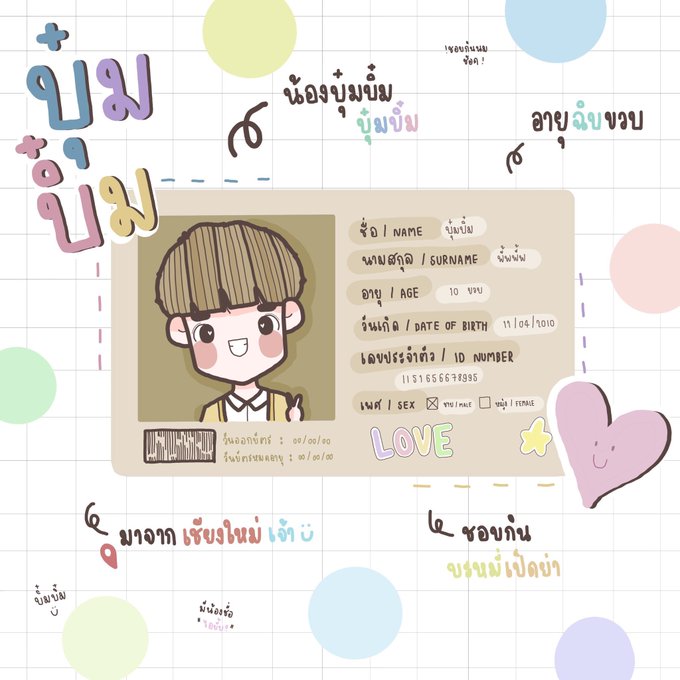 ปุ๋ม
ปิ๋ม
น้องปุ๋มปิ๋ม
ปุ๋มปิ๋ม
!ชอบกินนม
ช็อค!
อายุ ฉิบขวบ
ชื่อ / NAME ปุ๋มปิ๋ม
นามสกุล / SURNAME พิ้พพิ้พ
อายุ / AGE 10 ขวบ
วันเกิด / DATE OF BIRTH 11/04/2010
เลขประจำตัว / ID NUMBER
1151656678995
เพศ / SEX ชาย / MALE หญิง / FEMALE
วันออกบัตร : 00/00/00
วันบัตรหมดอายุ : 00/00/00
LOVE
มาจาก เชียงใหม่ เจ้า
ชอบกิน
บะหมี่เป็ดย่า
ปิ๋มปิ๋ม
มีน้องชื่อ